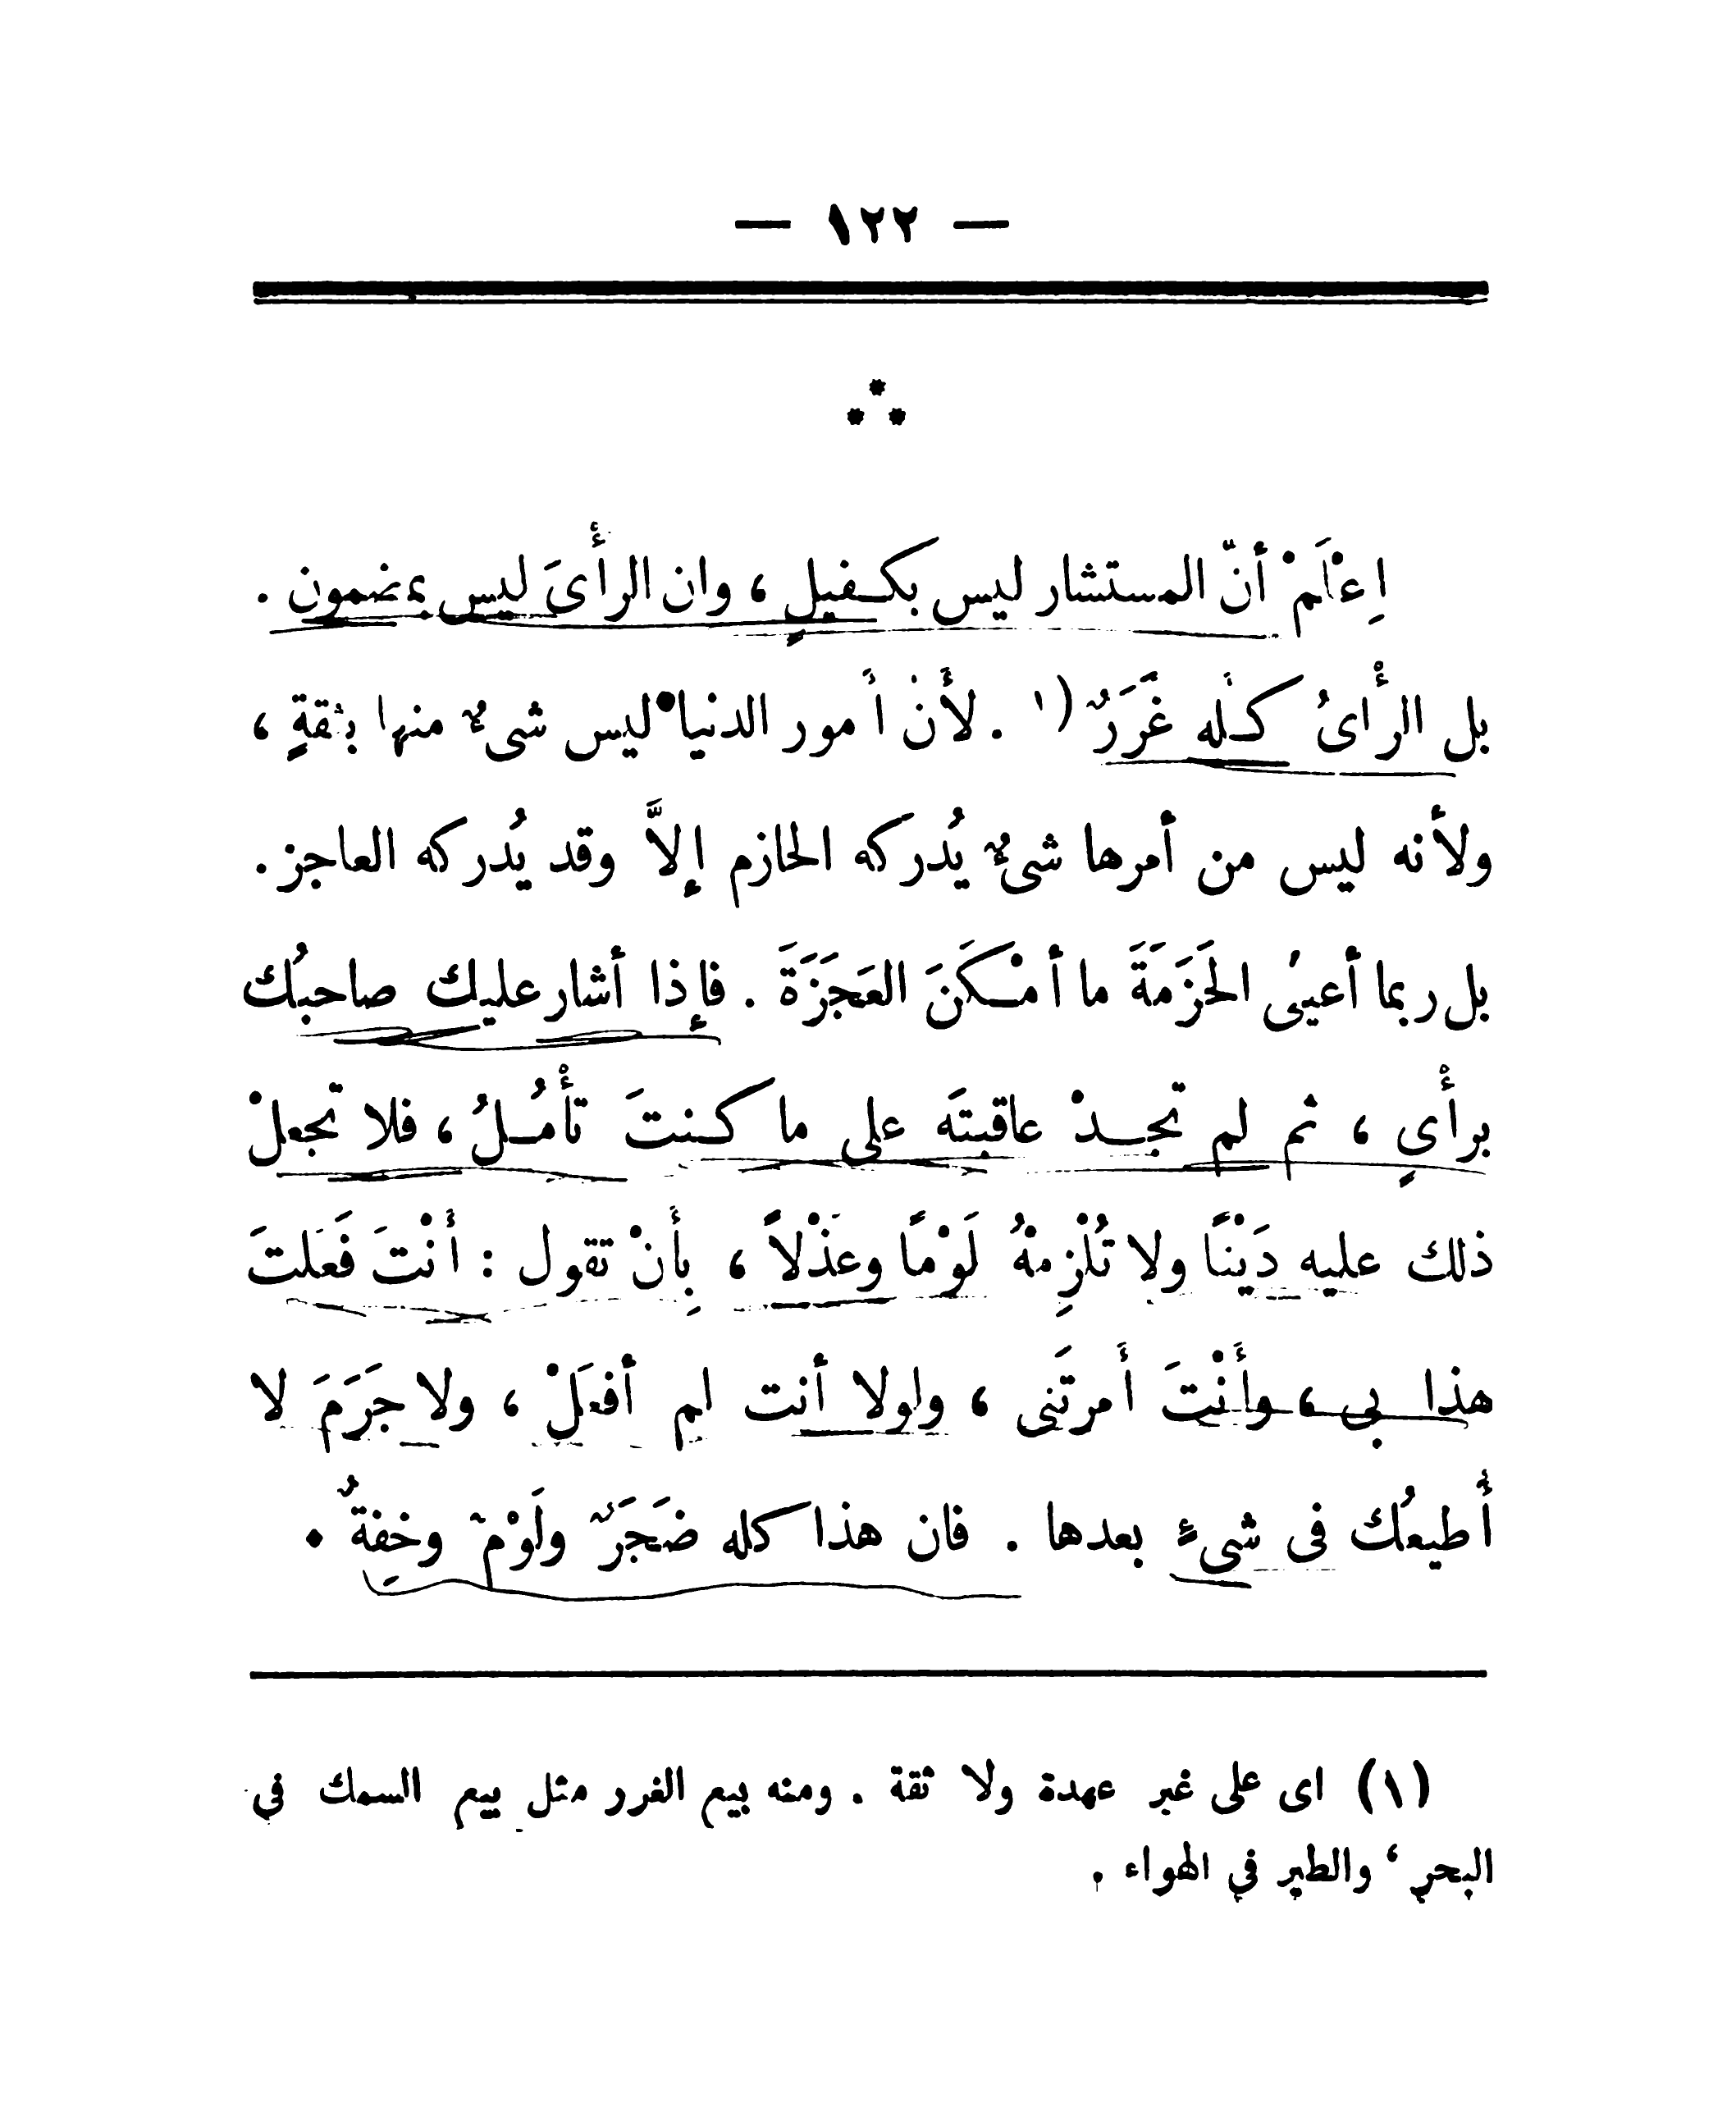 — ١٢٢ —
اِعْلَمْ أنّ المستشار ليس بكفيلٍ ، وان الرأىَ ليس بمضمون .
بل الرأىُ كله غَرَرٌ (١ . لأن أمور الدنيا ليس شىءٌ منها بثقةٍ ،
ولأنه ليس من أمرها شىءٌ يُدركه الحازم إلاَّ وقد يُدركه العاجز .
بل ربما أعيىٰ الحَزَمَةَ ما أمْكَنَ العَجَزَةَ . فإذا أشار عليك صاحبُك
برأىٍ ، ثم لم تجدْ عاقبتَه على ما كنتَ تأمُلُ ، فلا تجعلْ
ذلك عليه دَيْنًا ولا تُلْزِمْهُ لَوْمًا وعَذْلاً ، بِأَنْ تقول : أَنْتَ فَعَلتَ
هذا بى ، وأَنْتَ أَمرتَنى ، ولولا أنت لم أفعَلْ ، ولا جَرَمَ لا
أُطيعُك فى شىءٍ بعدها . فان هذا كله ضَجَرٌ ولَوْمٌ وخِفةٌ .
(١) اى على غير عهدة ولا ثقة . ومنه بيع الغرر مثل بيع السمك في
البحر ، والطير في الهواء .